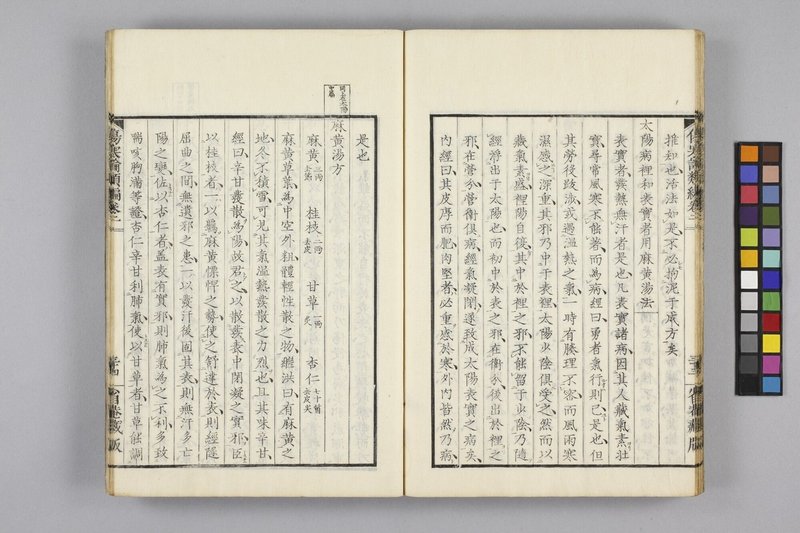 推知也活法如是不必拘泥于成方矣
太陽病裡和表實者用麻黃湯法
表實者發熱無汗者是也凡表實諸病因其人藏氣素壯
實尋常風寒不能著而為病經曰勇者氣行則已是也但
其勞後跋涉或遇溫熱之氣一時有腠理不密而風雨寒
濕感之深重其邪乃中于表裡太陽少陰俱受之然而以
藏氣素盛裡陽自從其中於裡之邪不能留于少陰乃隨
經將出于太陽也而初中於表之邪在衛分後出於裡之
邪在營分營衛俱病經氣凝閉遂致成太陽表實之病矣
內經曰其皮厚而肥肉堅者必重感於寒外內皆然乃病
是也
麻黃湯方
麻黃 三兩去節 桂枝 二兩去皮 甘草 一兩炙 杏仁 七十箇去皮尖
麻黃草葉為中空外粗體輕性散之物繼洪曰有麻黃之
地冬不積雪可見其氣溫熱發散之力烈也且其味辛甘
經曰辛甘發散為陽故君之以散發表中閉凝之實邪臣
以桂枝者一以鷹麻黃慓悍之勢使之舒達於表則經隧
屈曲之間無遺邪之患一以發汗後固其表則無汗多亡
陽之變佐以杏仁者蓋表有實邪則肺氣為之不利多致
喘咳胸滿等證杏仁辛甘利肺氣使以甘草者甘草能調
傷寒論類編卷二
省菴藏版